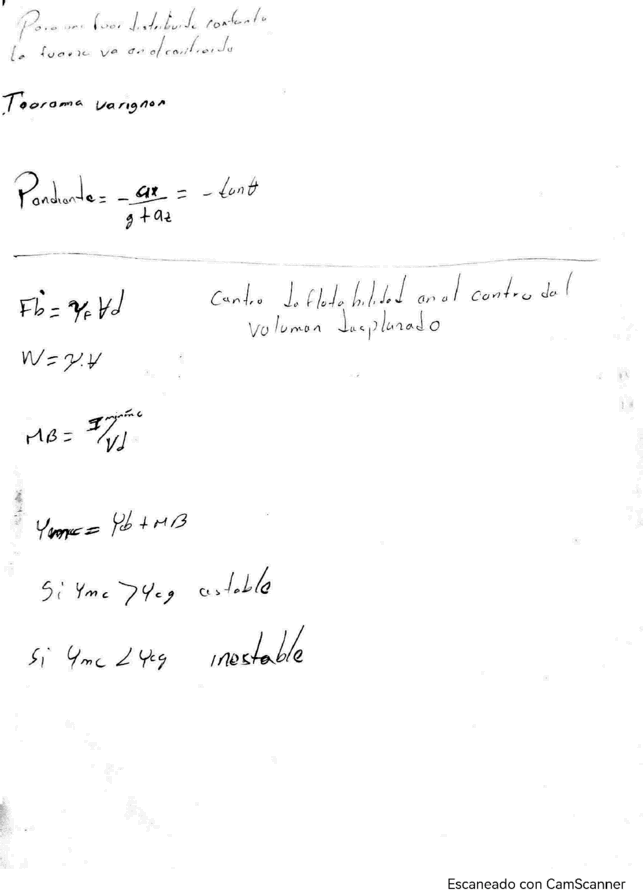 Para una fuerza distribuida constante
la fuerza va en el centroide
Teorama varignon
Pendiente = - ax / (g + az) = - tanθ
Fb = γF ∀d
Centro de flotabilidad en el centro del
volumen desplazado
W = γ.∀
MB = I mínimo / ∀d
Ymc = Yb + MB
Si Ymc > Ycg estable
Si Ymc < Ycg inestable
Escaneado con CamScanner